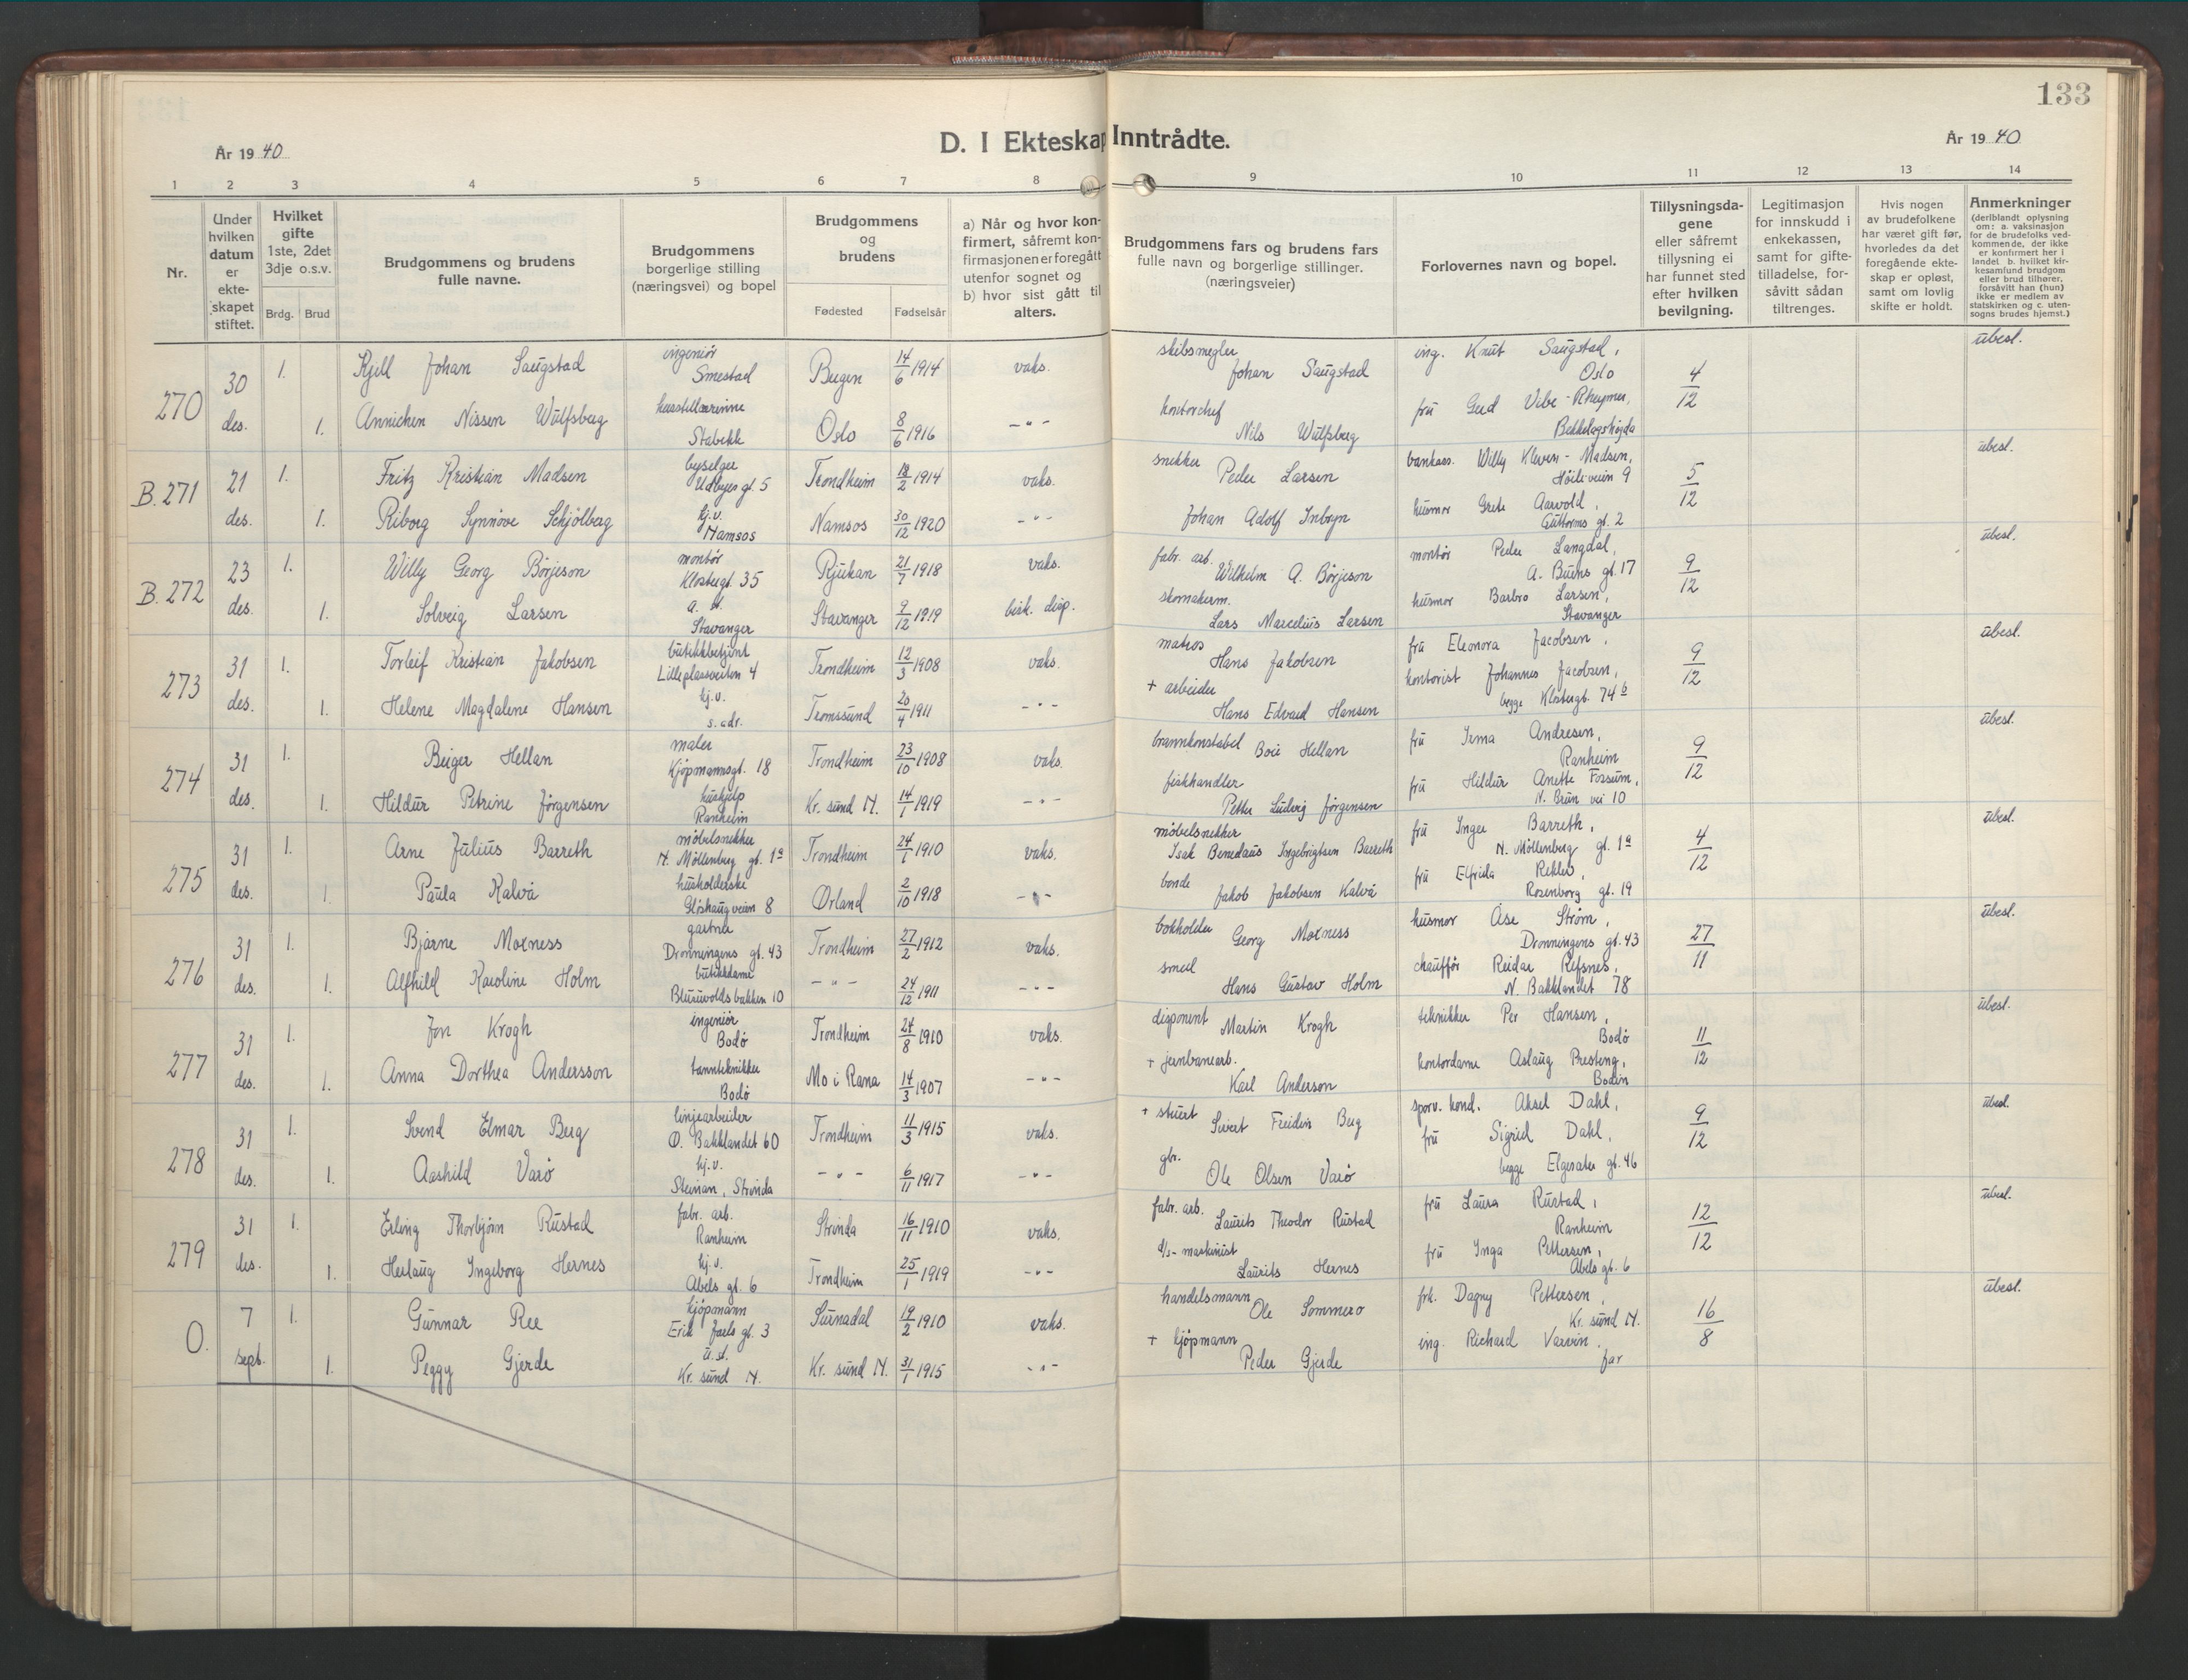 133
D. I Ekteskap Inntrådte.
År 1940
År 1940
1 2 3 4 5 6 7 8 9 10 11 12 13 14
Nr.
Under hvilken datum er ekteskapet stiftet.
Hvilket gifte 1ste, 2det 3dje o.s.v.
Brdg. Brud
Brudgommens og brudens fulle navne.
Brudgommens borgerlige stilling (næringsvei) og bopel
Brudgommens og brudens
Fødested Fødselsår
a) Når og hvor konfirmert, såfremt konfirmasjonen er foregått utenfor sognet og
b) hvor sist gått til alters.
Brudgommens fars og brudens fars fulle navn og borgerlige stillinger. (næringsveier)
Forlovernes navn og bopel.
Tillysningsdagene eller såfremt tillysning ei har funnet sted efter hvilken bevilgning.
Legitimasjon for innskudd i enkekassen, samt for giftetilladelse, forsåvitt sådan tiltrenges.
Hvis nogen av brudefolkene har været gift før, hvorledes da det foregående ekteskap er opløst, samt om lovlig skifte er holdt.
Anmerkninger (deriblandt oplysning om: a. vaksinasjon for de brudefolks vedkommende, der ikke er konfirmert her i landet b. hvilket kirkesamfund brudgom eller brud tilhører, forsåvitt han (hun) ikke er medlem av statskirken og c. utensogns brudes hjemst.)
270 30 des. 1. Kjell Johan Saugstad ingeniør Smestad Bergen 14/6 1914 vaks. skibsmegler Johan Saugstad ing. Knut Saugstad, Oslo 4/12 ubesl.
1. Annichen Nissen Wulfsberg Stabekk Oslo 8/6 1916 -"- kontorchef Nils Wulfsberg fru Gerd Vibe- Bekkelagshøgda
B. 271 21 des. 1. Fritz Kristian Madsen byselger Udbyes gt. 5 Trondheim 18/2 1914 vaks. snekker Peder Larsen bankass. Willy Kleven-Madsen, Höiliveien 9 5/12 ubesl.
1. Riborg Synnöve Schjölberg hj.v. Namsos Namsos 30/12 1920 -"- Johan Adolf husmor Grete Aarvold, Guttorms gt. 2
B. 272 23 des. 1. Willy Georg Börjeson montör Klostergt. 35 Rjukan 21/7 1918 vaks. fabr. arb. Wilhelm A. Börjeson montör Peder Langdal, A. Buens gt. 17 9/12 ubesl.
1. Solveig Larsen Stavanger Stavanger 9/12 1919 bisk. disp. skomakerm. Lars Marcelius Larsen husmor Barbro Larsen, Stavanger
273 31 des. 1. Torleif Kristian Jakobsen butikkbetjent Lilleplassveiten 4 Trondheim 12/3 1908 vaks. matros Hans Jakobsen fru Eleonora Jacobsen, 9/12 ubesl.
1. Helene Magdalene Hansen hj.v. s. adr. Tromssund 20/4 1911 -"- + arbeider Hans Edvard Hansen kontorist Johannes Jacobsen, begge Klostergt. 74 b
274 31 des. 1. Birger Hellan maler Kjöpmannsgt. 18 Trondheim 23/10 1908 vaks. brannkonstabel Boie Hellan fru Irma Andresen, Ranheim 9/12 ubesl.
1. Hildur Petrine Jörgensen hushjelp Ranheim Kr. sund N. 14/1 1919 -"- fiskhandler Petter Ludvig Jörgensen fru Hildur Anette Fossum, N. Brun vei 10
275 31 des. 1. Arne Julius Barreth möbelsnekker N. Möllenberg gt. 1a Trondheim 24/1 1910 vaks. möbelsnekker Isak Benedaus Ingebrigtsen Barreth fru Inger Barreth, N. Möllenberg gt. 1a 4/12 ubesl.
1. Paula Kalvå husholderske Glöshaugveien 8 Ørland 2/10 1918 -"- bonde Jakob Jakobsen Kalvå fru Elfrida Rekleb, Rosenborg gt. 19
276 31 des. 1. Bjarne Moxness gartner Dronningens gt. 43 Trondheim 27/2 1912 vaks. bokholder Georg Moxness husmor Åse Ström, Dronningens gt. 43 27/11 ubesl.
1. Alfhild Karoline Holm butikkdame Blusuvoldsbakken 10 -"- 24/12 1911 -"- smed Hans Gustav Holm chaufför Reidar Refsnes, N. Bakklandet 78
277 31 des. 1. Jon Krogh ingeniör Bodö Trondheim 24/8 1910 vaks. disponent Martin Krogh tekniker Per Hansen, Bodö 11/12 ubesl.
1. Anna Dorthea Andersson tanntekniker Bodö Mo i Rana 14/3 1907 -"- + jernbanearb. Karl Anderson kontordame Aslaug Presteng, Bodin
278 31 des. 1. Svend Elmar Berg linjearbeider Ø. Bakklandet 60 Trondheim 11/3 1915 vaks. + stuert Sivert Fredin Berg sporv. kond. Aksel Dahl, 9/12 ubesl.
1. Aashild Varö hj.v. Steinan, Strinda -"- 6/11 1917 -"- gbr. Ole Olsen Varö fru Sigrid Dahl, begge Elgeseter gt. 46
279 31 des. 1. Erling Thorbjörn Rustad fabr. arb. Ranheim Strinda 16/11 1910 vaks. fabr. arb. Laurits Theodor Rustad fru Laura Rustad, Ranheim 12/12 ubesl.
1. Herlaug Ingeborg Hernes hj.v. Abels gt. 6 Trondheim 25/1 1919 -"- d/s-maskinist Laurits Hernes fru Inga Pettersen, Abels gt. 6
O. 7 sept. 1. Gunnar Ree kjöpmann Erik Jarls gt. 3 Surnadal 19/2 1910 vaks. handelsmann Ole Sommero frk. Dagny Pettersen, Kr. sund N. 16/8 ubesl.
1. Peggy Gjerde u. st. Kr. sund N. Kr. sund N. 31/1 1915 -"- + kjöpmann Peder Gjerde ing. Richard Varvin. far